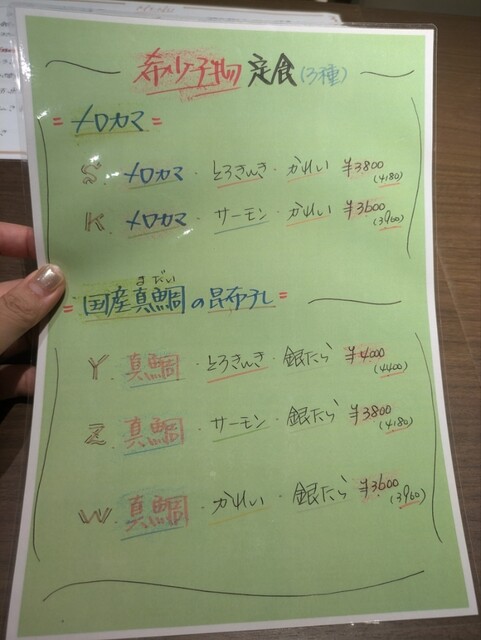 希少干物 定食(3種)
= メロカマ =
S. メロカマ・とろきんき・かれい ¥3800
(4180)
K. メロカマ・サーモン・かれい ¥3600
(3960)
まだい
= 国産真鯛の昆布〆 =
Y. 真鯛・とろきんき・銀たら ¥4000
(4400)
Z. 真鯛・サーモン・銀だら ¥3800
(4180)
W. 真鯛・かれい・銀たら ¥3600
(3960)